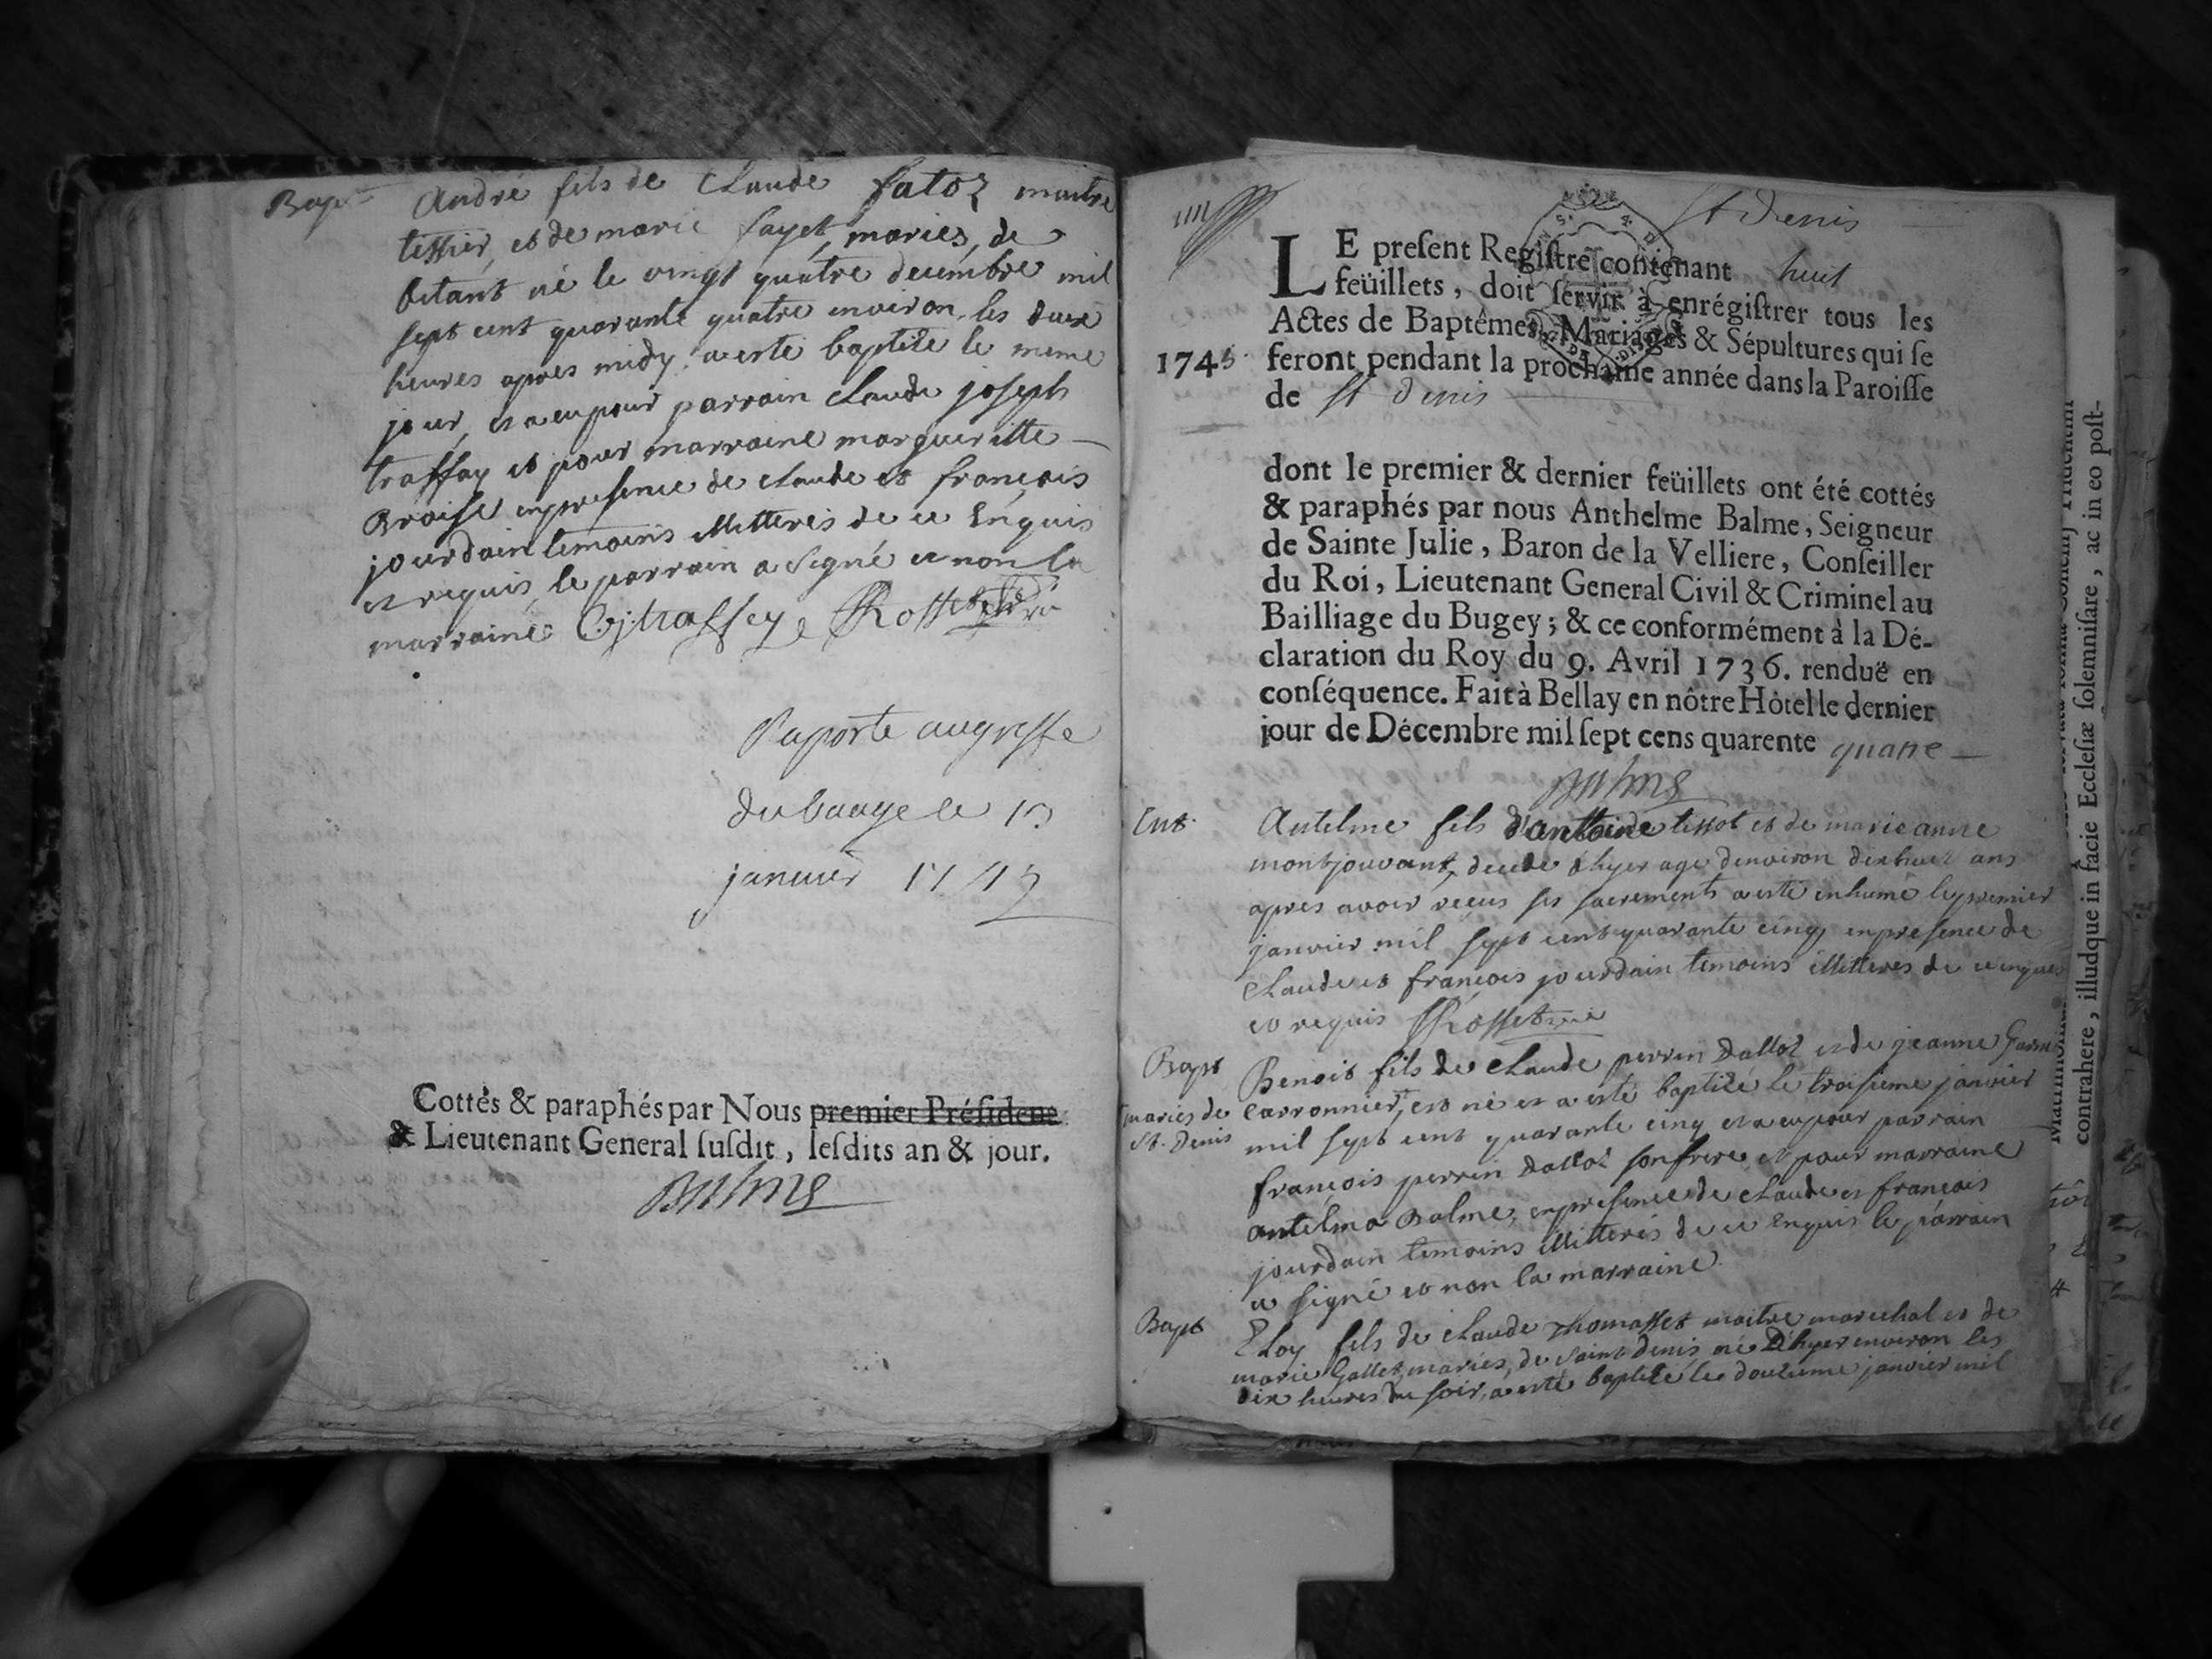 Bapt André fils de Claude fatoz maitre
tessier, et de marie fayet, mariés, de
né le vingt quatre decembre mil
sept cent quarante quatre environ les
heures apres midy a esté baptizé le meme
jour, et a eu pour parrain claude joseph
traffay et pour marraine margueritte
en presence de claude et françois
jourdain temoins illitterés de ce Enquis
et requis, le parrain a signé et non la
marraine Cjtraffey Rosset curé
Raporte au greffe
du le 13
janvier 1745
Cottés & paraphés par Nous premier Présidene
& Lieutenant General suſdit, leſdits an & jour.
Balme
St Denis
LE preſent Regiſtre contenant huit
feüillets, doit ſervir à enrégiſtrer tous les
Actes de Baptêmes, Mariages & Sépultures qui ſe
1745 feront pendant la prochaine année dans la Paroiſſe
de St denis
dont le premier & dernier feüillets ont été cottés
& paraphés par nous Anthelme Balme, Seigneur
de Sainte Julie, Baron de la Velliere, Conſeiller
du Roi, Lieutenant General Civil & Criminel au
Bailliage du Bugey; & ce conformément à la Dé-
claration du Roy du 9. Avril 1736. renduë en
conſéquence. Fait à Bellay en nôtre Hôtel le dernier
jour de Décembre mil ſept cens quarente quatre
Balme
Ent. Antelme fils d'antoine tissot et de marie anne
montjouvant, decede d'hyer agé denviron dixhuit ans
apres avoir reçus ses sacrements a esté inhumé le premier
janvier mil sept cent quarante cinq en presence de
claude et françois jourdain temoins illitterés de ce enquis
et requis Rosset curé
Bapt Benoit fils de claude perrin Dalloz et de jeanne
mariés de St. Denis carronnier, est né et a esté baptizé le troisieme janvier
mil sept cent quarante cinq et a eu pour parrain
françois perrin Dalloz son frere et pour marraine
antelma Balme, en presence de claude et françois
jourdain temoins illitterés de ce enquis le parrain
a signé et non la marraine
Bapt Eloy fils de claude Thomasset maitre marechal et de
marie Gallet, mariés, de saint denis né D'hyer environ les
dix heures du soir, a esté baptizé le douzieme janvier mil
contrahere, illudque in facie Eccleſiæ ſolemniſare, ac in eo poſt-